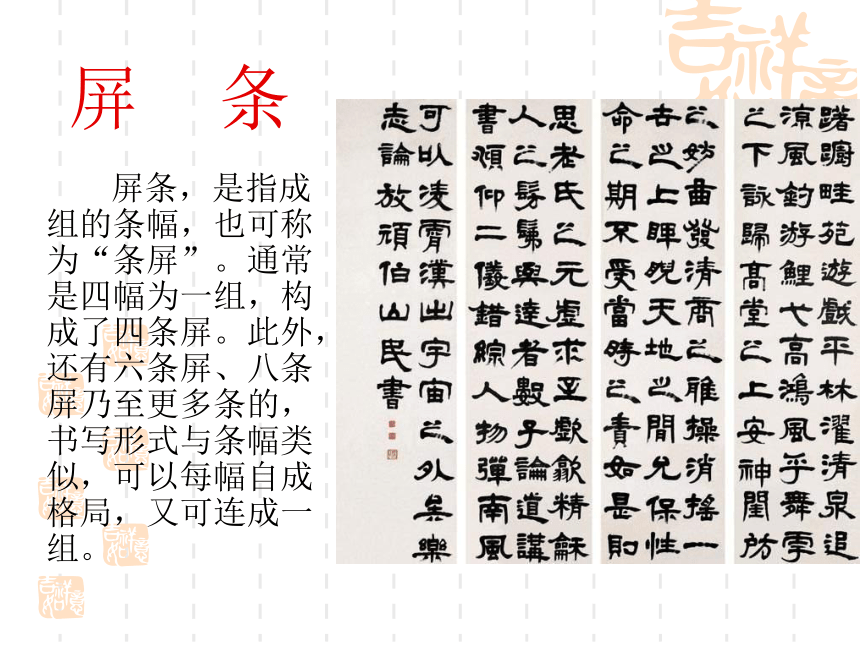 屏 条
屏条，是指成
组的条幅，也可称
为“条屏”。通常
是四幅为一组，构
成了四条屏。此外，
还有六条屏、八条
屏乃至更多条的，
书写形式与条幅类
似，可以每幅自成
格局，又可连成一
组。
躇躕畦苑遊戲平林濯清泉追
涼風釣游鯉弋高鴻風乎舞雩
之下詠歸高堂之上安神閨房
之妙曲發清商之雅操消搖一
世之上睥睨天地之間允保性
命之期不受當時之責如是則
思老氏之元虛求至歔歙精龢
人之髣髴與達者數子論道講
書頫仰二儀錯綜人物彈南風
可以凌霄漢出宇宙之外矣樂
志論放頑伯山民書
吉祥如意